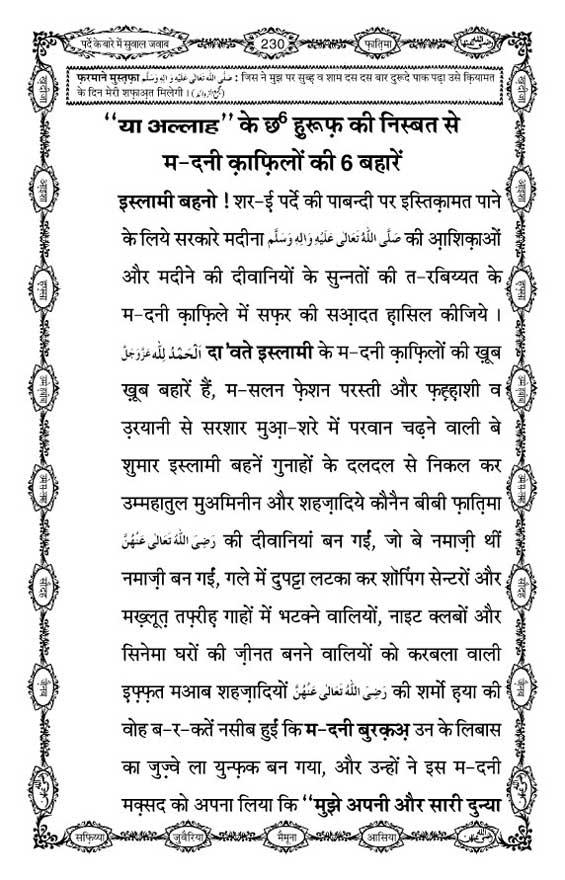 पर्दे के बारे में सुवाल जवाब
230
फ़ातिमा
फ़रमाने मुस्तफ़ा صَلَّى اللهُ تَعَالٰى عَلَيْهِ وَاٰلِهٖ وَسَلَّم : जिस ने मुझ पर सुब्ह व शाम दस दस बार दुरूदे पाक पढ़ा उसे क़ियामत
के दिन मेरी शफ़ाअ़त मिलेगी।
“या अल्लाह” के छ6 हुरूफ़ की निस्बत से
म-दनी क़ाफ़िलों की 6 बहारें
इस्लामी बहनो ! शर-ई पर्दे की पाबन्दी पर इस्तिक़ामत पाने
के लिये सरकारे मदीना صَلَّى اللهُ تَعَالٰى عَلَيْهِ وَاٰلِهٖ وَسَلَّم की आ़शिक़ाओं
और मदीने की दीवानियों के सुन्नतों की त-रबिय्यत के
म-दनी क़ाफ़िले में सफर की सआ़दत हासिल कीजिये ।
اَلْحَمْدُ لِلّٰه عَزَّوَجَلَّ दा'वते इस्लामी के म-दनी क़ाफ़िलों की ख़ूब
ख़ूब बहारें हैं, म-सलन फ़ेशन परस्ती और फ़ह़्ह़ाशी व
उ़रयानी से सरशार मुआ़-शरे में परवान चढ़ने वाली बे
शुमार इस्लामी बहनें गुनाहों के दलदल से निकल कर
उम्महातुल मुअमिनीन और शहज़ादिये कौनैन बीबी फ़ातिमा
رَضِیَ اللّٰهُ تَعَالٰی عَنْهُنَّ की दीवानियां बन गईं, जो बे नमाज़ी थीं
नमाज़ी बन गईं, गले में दुपट्टा लटका कर शॉपिंग सेन्टरों और
मख़्लूत़ तफ़्रीह़ गाहों में भटक्ने वालियों, नाइट क्लबों और
सिनेमा घरों की ज़ीनत बनने वालियों को करबला वाली
इ़फ़्फ़त मआब शहज़ादियों رَضِیَ اللّٰهُ تَعَالٰی عَنْهُنَّ की शर्मो ह़या की
वोह ब-र-कतें नसीब हुईं कि म-दनी बुरक़अ़ उन के लिबास
का जुज़्वे ला युन्फ़क बन गया, और उन्हों ने इस म-दनी
मक़्सद को अपना लिया कि “मुझे अपनी और सारी दुन्या
सफ़िय्या
जुवैरिया
मैमूना
आसिया